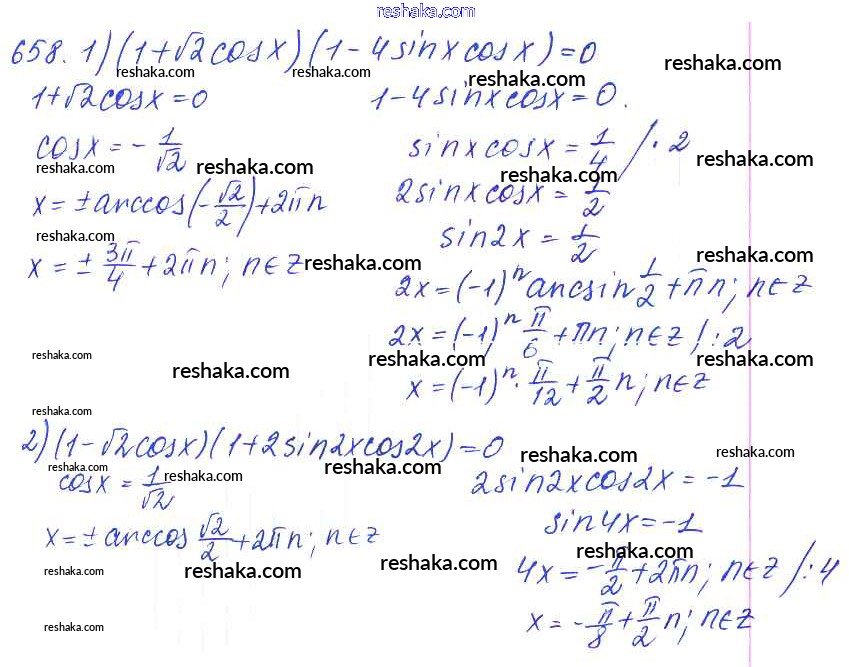 reshaka.com
658. 1) (1+√2cosx)(1-4sinxcosx)=0
reshaka.com reshaka.com reshaka.com
1+√2cosx=0 1-4sinxcosx=0.
cosx=-1/√2 sinxcosx=1/4 /·2
reshaka.com reshaka.com reshaka.com reshaka.com
x=±arccos(-√2/2)+2πn 2sinxcosx=1/2
reshaka.com sin2x=1/2
x=±3π/4+2πn; n∈Z reshaka.com reshaka.com
2x=(-1)ⁿarcsin1/2+πn; n∈Z
2x=(-1)ⁿπ/6+πn; n∈Z /:2
reshaka.com reshaka.com reshaka.com reshaka.com
x=(-1)ⁿ·π/12+π/2n; n∈Z
reshaka.com
2) (1-√2cosx)(1+2sin2xcos2x)=0
reshaka.com reshaka.com reshaka.com reshaka.com
cosx=1/√2 2sin2xcos2x=-1
x=±arccos√2/2+2πn; n∈Z sin4x=-1
reshaka.com reshaka.com reshaka.com reshaka.com
4x=-π/2+2πn; n∈Z /:4
x=-π/8+π/2n; n∈Z
reshaka.com reshaka.com